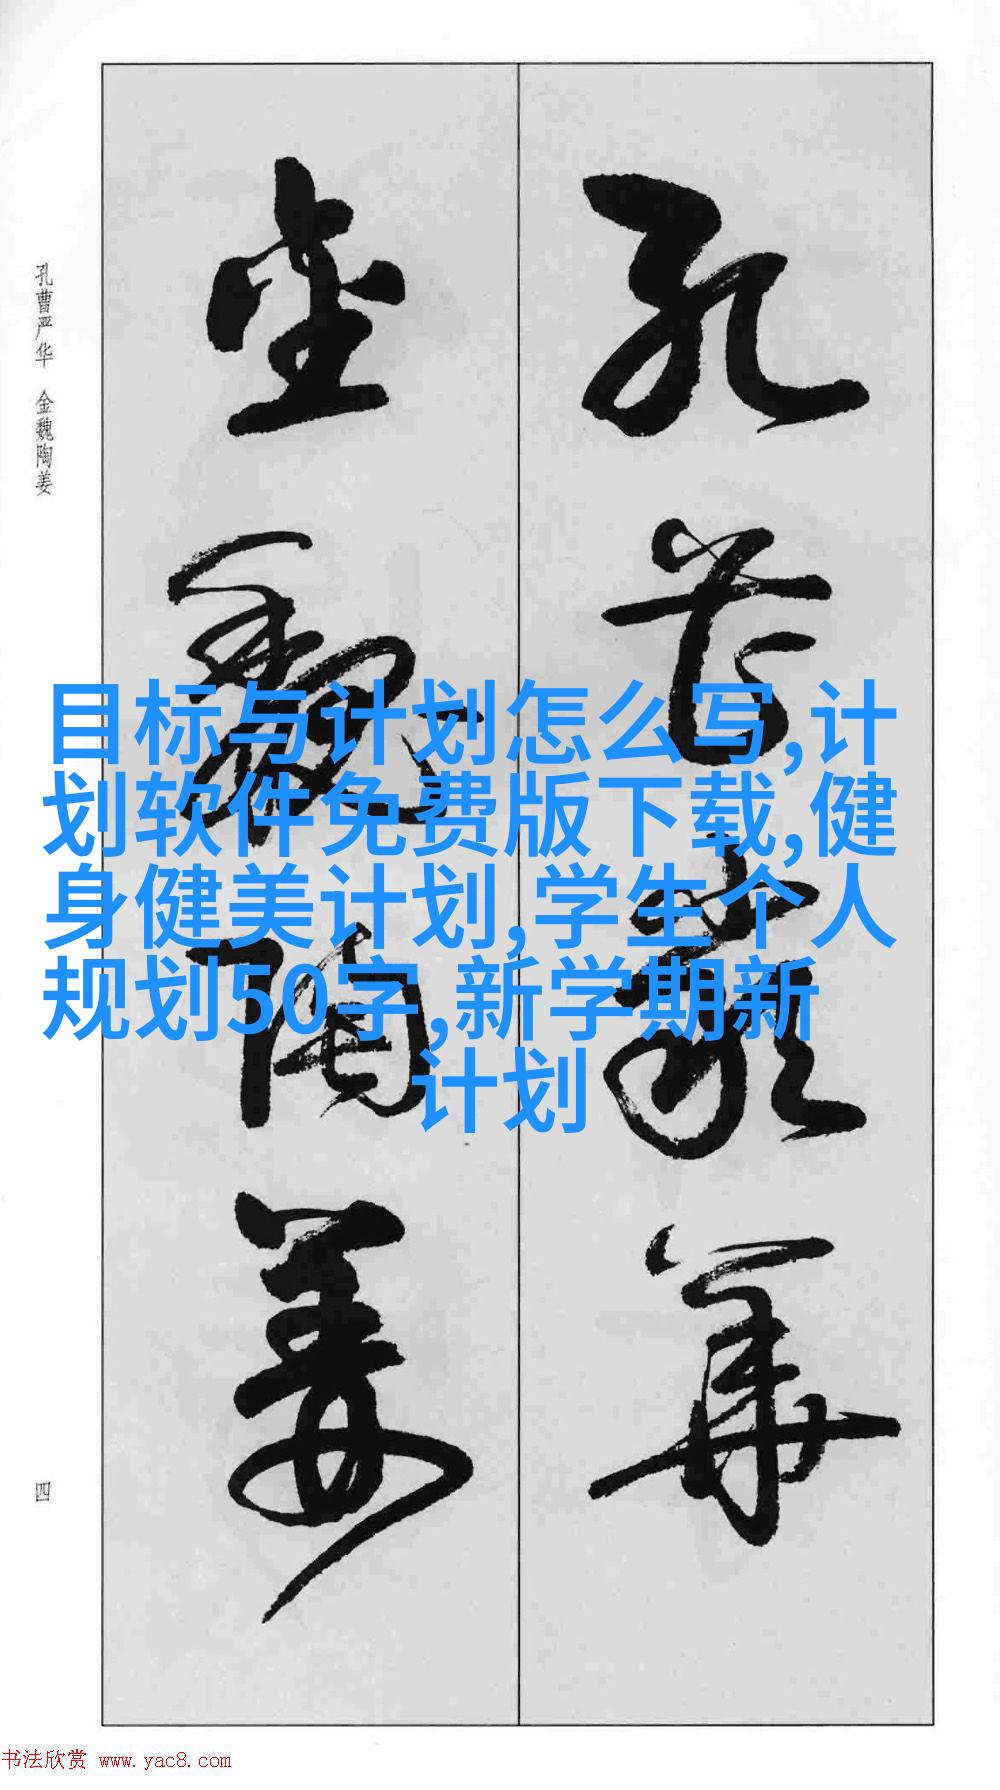 孔曹严华 金魏陶姜
四
孔曹严华
金魏陶姜
目标与计划怎么写,计
划软件免费版下载,健
身健美计划,学生个人
规划50字,新学期新
计划
书法欣赏 www.yac8.com